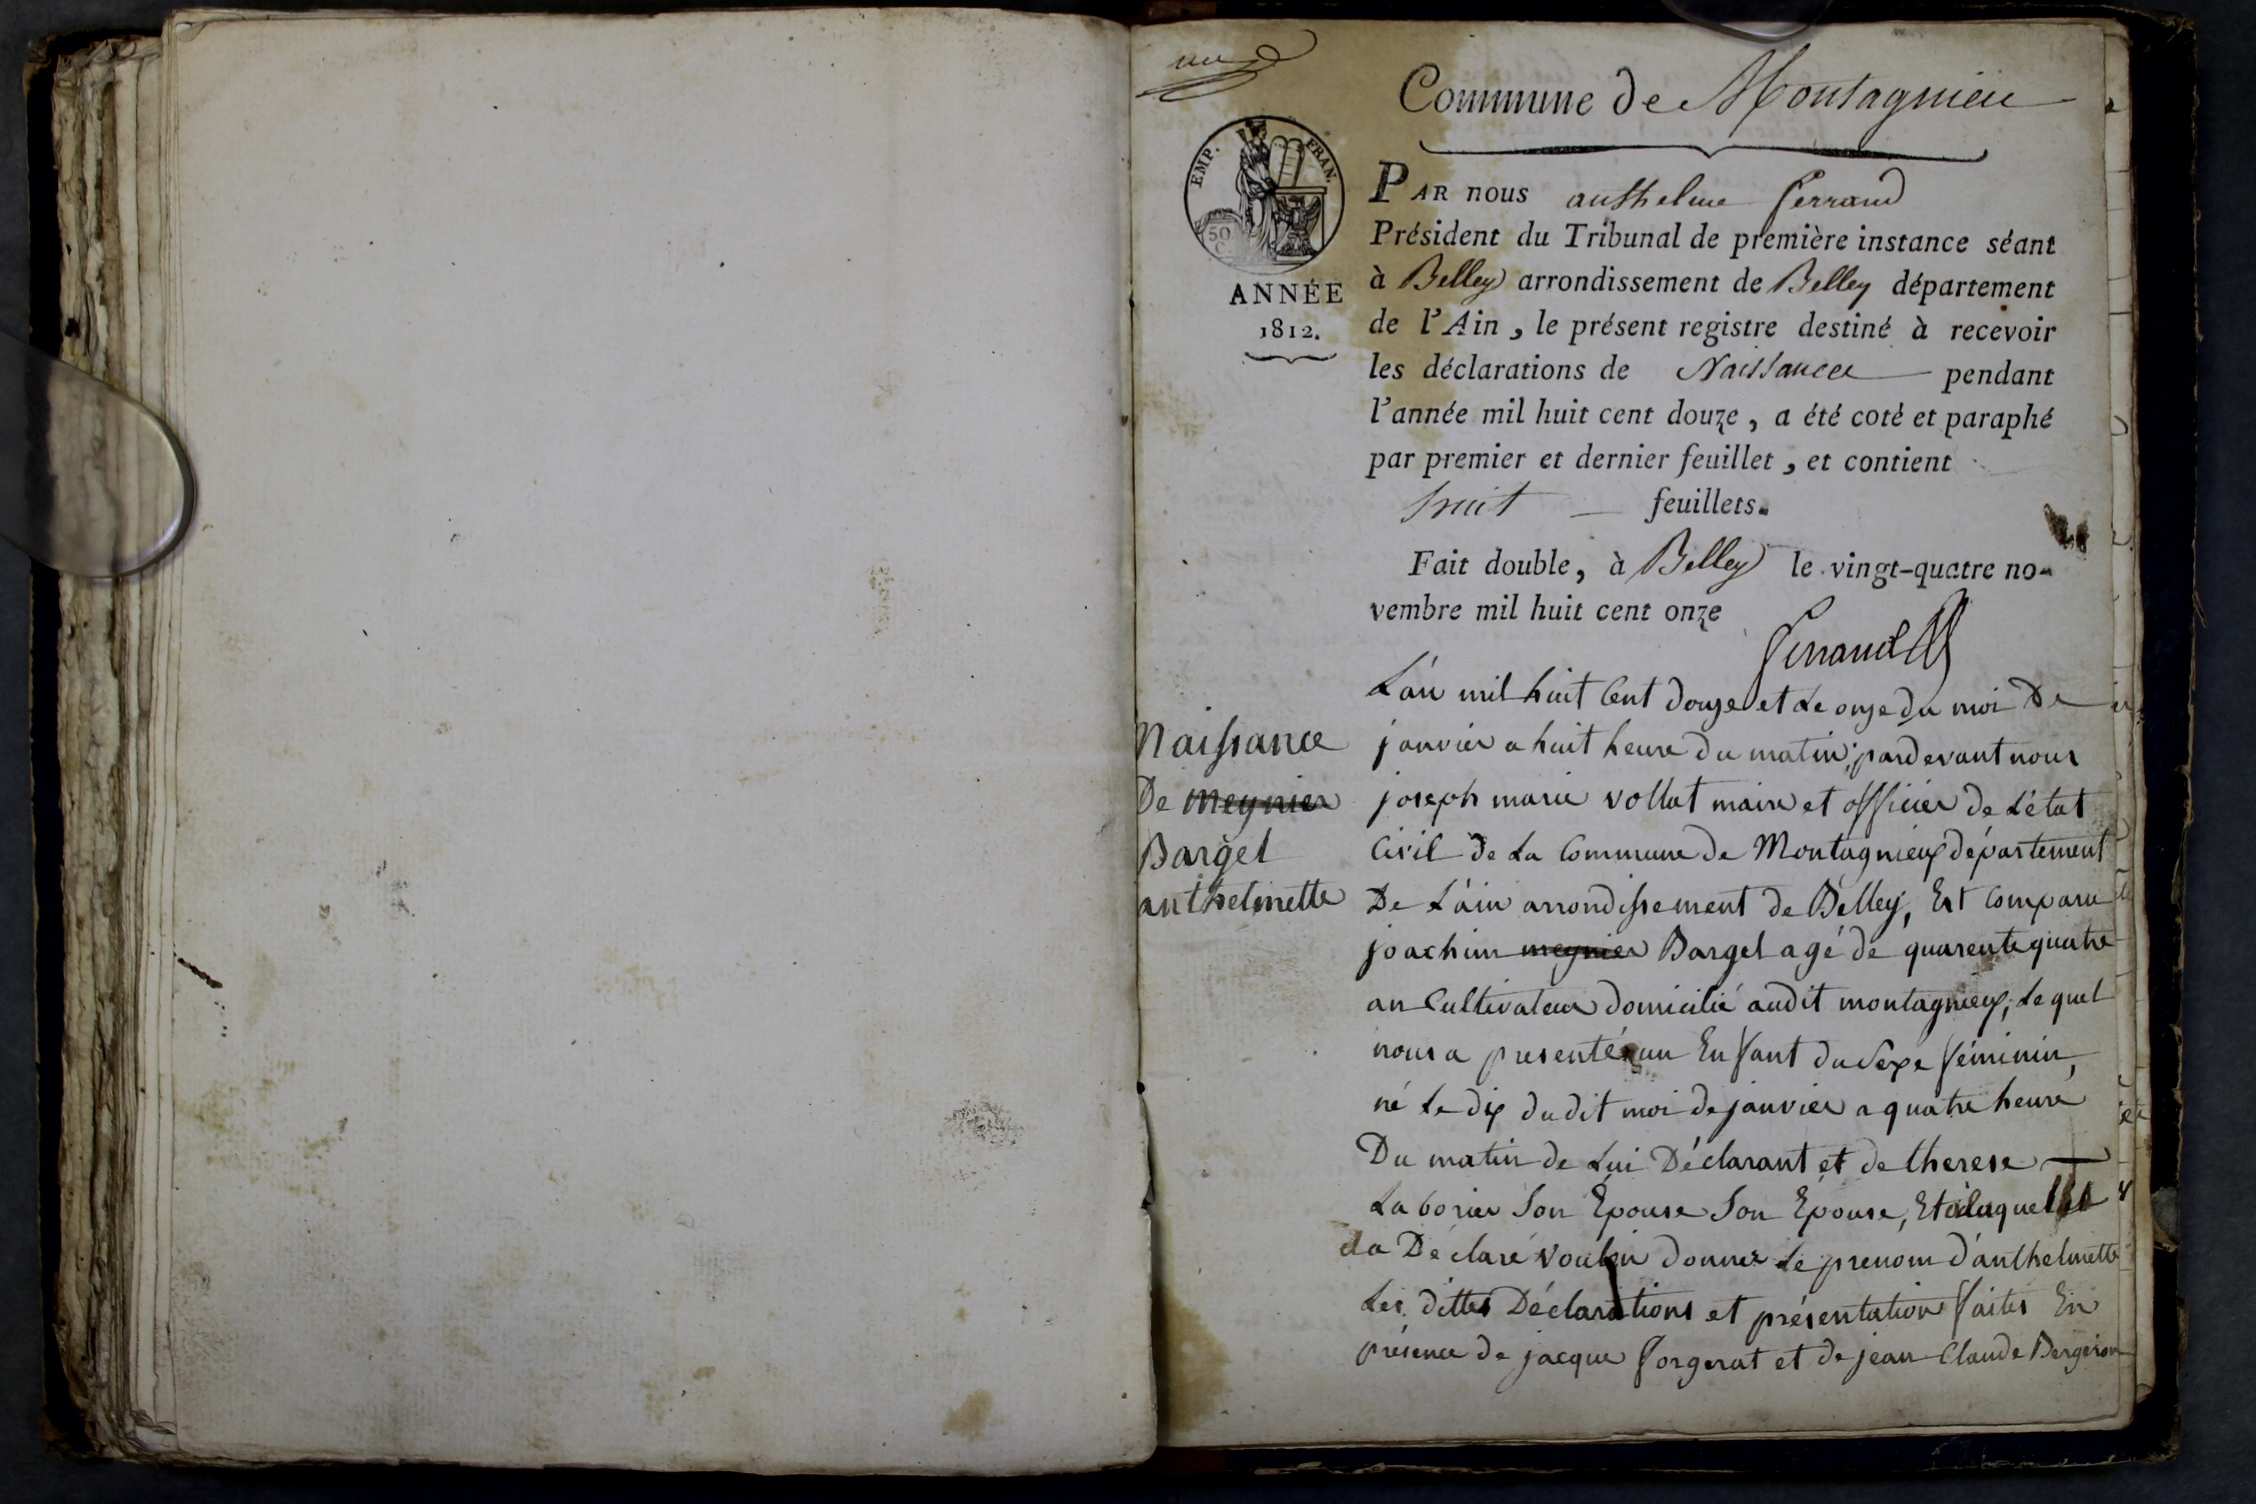 une
Commune de Montagnieu
EMP. FRAN.
50 C.
ANNÉE
1812.
PAR nous anthelme ferrand
Président du Tribunal de première instance séant
à Belley arrondissement de Belley département
de l'Ain, le présent registre destiné à recevoir
les déclarations de Naissance pendant
l'année mil huit cent douze, a été coté et paraphé
par premier et dernier feuillet, et contient
huit feuillets.
Fait double, à Belley le vingt-quatre no-
vembre mil huit cent onze
ferrand
Naissance
De meynier
Bargel
anthelmette
L'an mil huit Cent douze et Le onze du moi De
janvier a huit heure du matin; pardevant nous
joseph marie vollat maire et officier de L'état
Civil de La Commune de Montagnieux département
De L'ain arrondissement de Belley, Est Comparu
joachim meynier Bargel agé de quarente quatre
an Cultivateur domicilié audit montagnieux; Le quel
nous a presenté un Enfant du Sexe féminin,
né Le dix du dit moi de janvier a quatre heure
Du matin de Lui Déclarant et de therese
La borier Son Épouse Son Epouse, Et a laquelle
il a Déclaré vouloir donner Le prenom d'anthelmette
Les dittes Déclarations et présentation faites En
présence de jacque forgerat et de jean Claude Bergeron